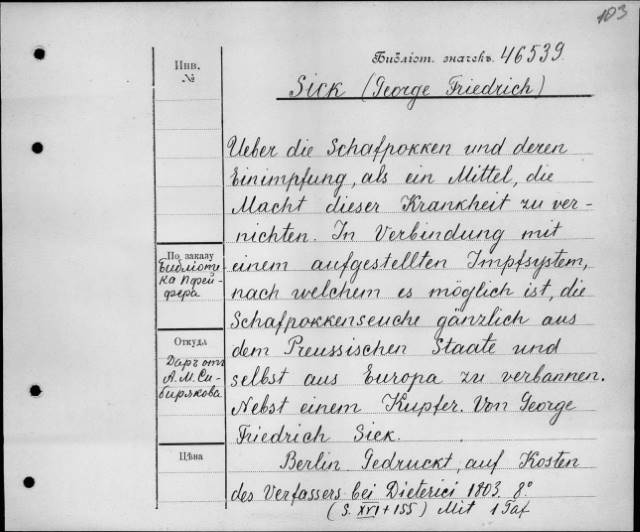 103
Библіот. значекъ. 46539.
Инв.
№
Sick (George Friedrich)
Ueber die Schafpokken und deren
Einimpfung, als ein Mittel, die
Macht dieser Krankheit zu ver-
nichten. In Verbindung mit
einem aufgestellten Impfsystem,
nach welchem es möglich ist, die
Schafpokkenseuche gänzlich aus
dem Preussischen Staate und
selbst aus Europa zu verbannen.
Nebst einem Kupfer. Von George
Friedrich Sick.
Berlin Gedruckt, auf Kosten
des Verfassers bei Dieterici 1803. 8°
(S. XVI + 155) Mit 1 Taf
По заказу
Библіоте-
ка Пфей-
фера
Откуда
Даръ отъ
А. М. Си-
бирякова
Цѣна